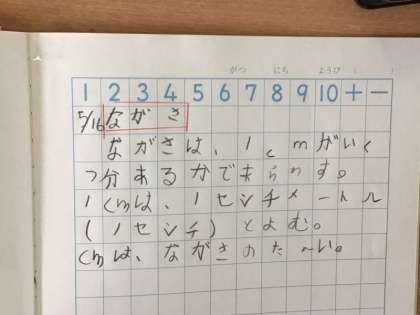 がつ にち ようび ( )
1 2 3 4 5 6 7 8 9 10 + -
5/16 ながさ
ながさは、1cmがいく
つ分あるかであらわす。
1cmは、1センチメートル
(1センチ)とよむ。
cmは、ながさのたーい。